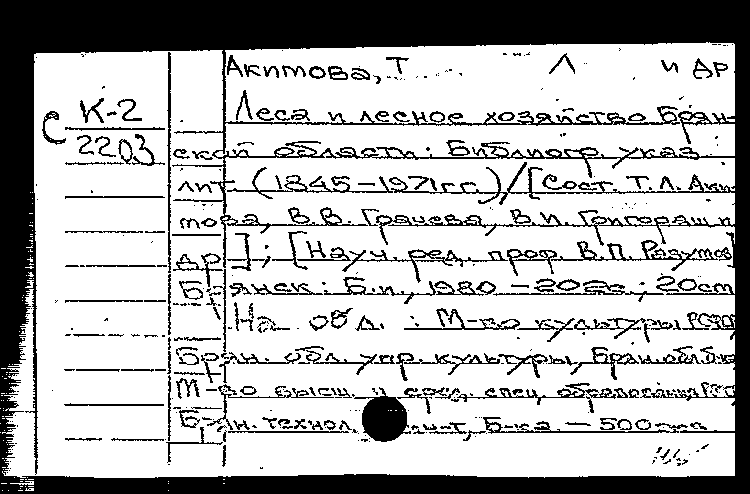 Акимова, Т Л и др
С К-2
2203
Леса и лесное хозяйство Брян-
ской области: Библиогр. указ.
лит. (1845-1971гг.)/[Сост. Т.Л. Аки-
мова, В.В. Грачева, В.И. Григораш и
др]; [Науч. ред. проф. В.П. Разумов]
Брянск: Б.и., 1980 - 202с.; 20см
На обл.: М-во культуры РСФСР
Брян. обл. упр. культуры, Брян. обл. б-ка
М-во высш. и сред. спец. образования РСФСР
Брян. технол. ин-т, Б-ка. - 500экз.